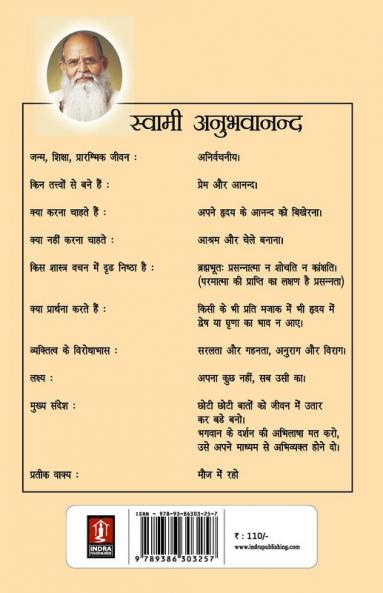 स्वामी अनुभवानन्द
जन्म, शिक्षा, प्रारम्भिक जीवन : अनिर्वचनीय।
किन तत्त्वों से बने हैं : प्रेम और आनन्द।
क्या करना चाहते हैं : अपने हृदय के आनन्द को बिखेरना।
क्या नहीं करना चाहते : आश्रम और चेले बनाना।
किस शास्त्र वचन में दृढ निष्ठा है : ब्रह्मभूतः प्रसन्नात्मा न शोचति न कांक्षति।
(परमात्मा की प्राप्ति का लक्षण है प्रसन्नता)
क्या प्रार्थना करते हैं : किसी के भी प्रति मजाक में भी हृदय में
द्वेष या घृणा का भाव न आए।
व्यक्तित्व के विरोधाभास : सरलता और गहनता, अनुराग और विराग।
लक्ष्य : अपना कुछ नहीं, सब उसी का।
मुख्य संदेश : छोटी छोटी बातों को जीवन में उतार
कर बडे बनो।
भगवान के दर्शन की अभिलाषा मत करो,
उसे अपने माध्यम से अभिव्यक्त होने दो।
प्रतीक वाक्य : मौज में रहो
ISBN - 978-93-86303-25-7
9 789386 303257
INDRA
PUBLISHING HOUSE
₹ : 110/-
www.indrapublishing.com